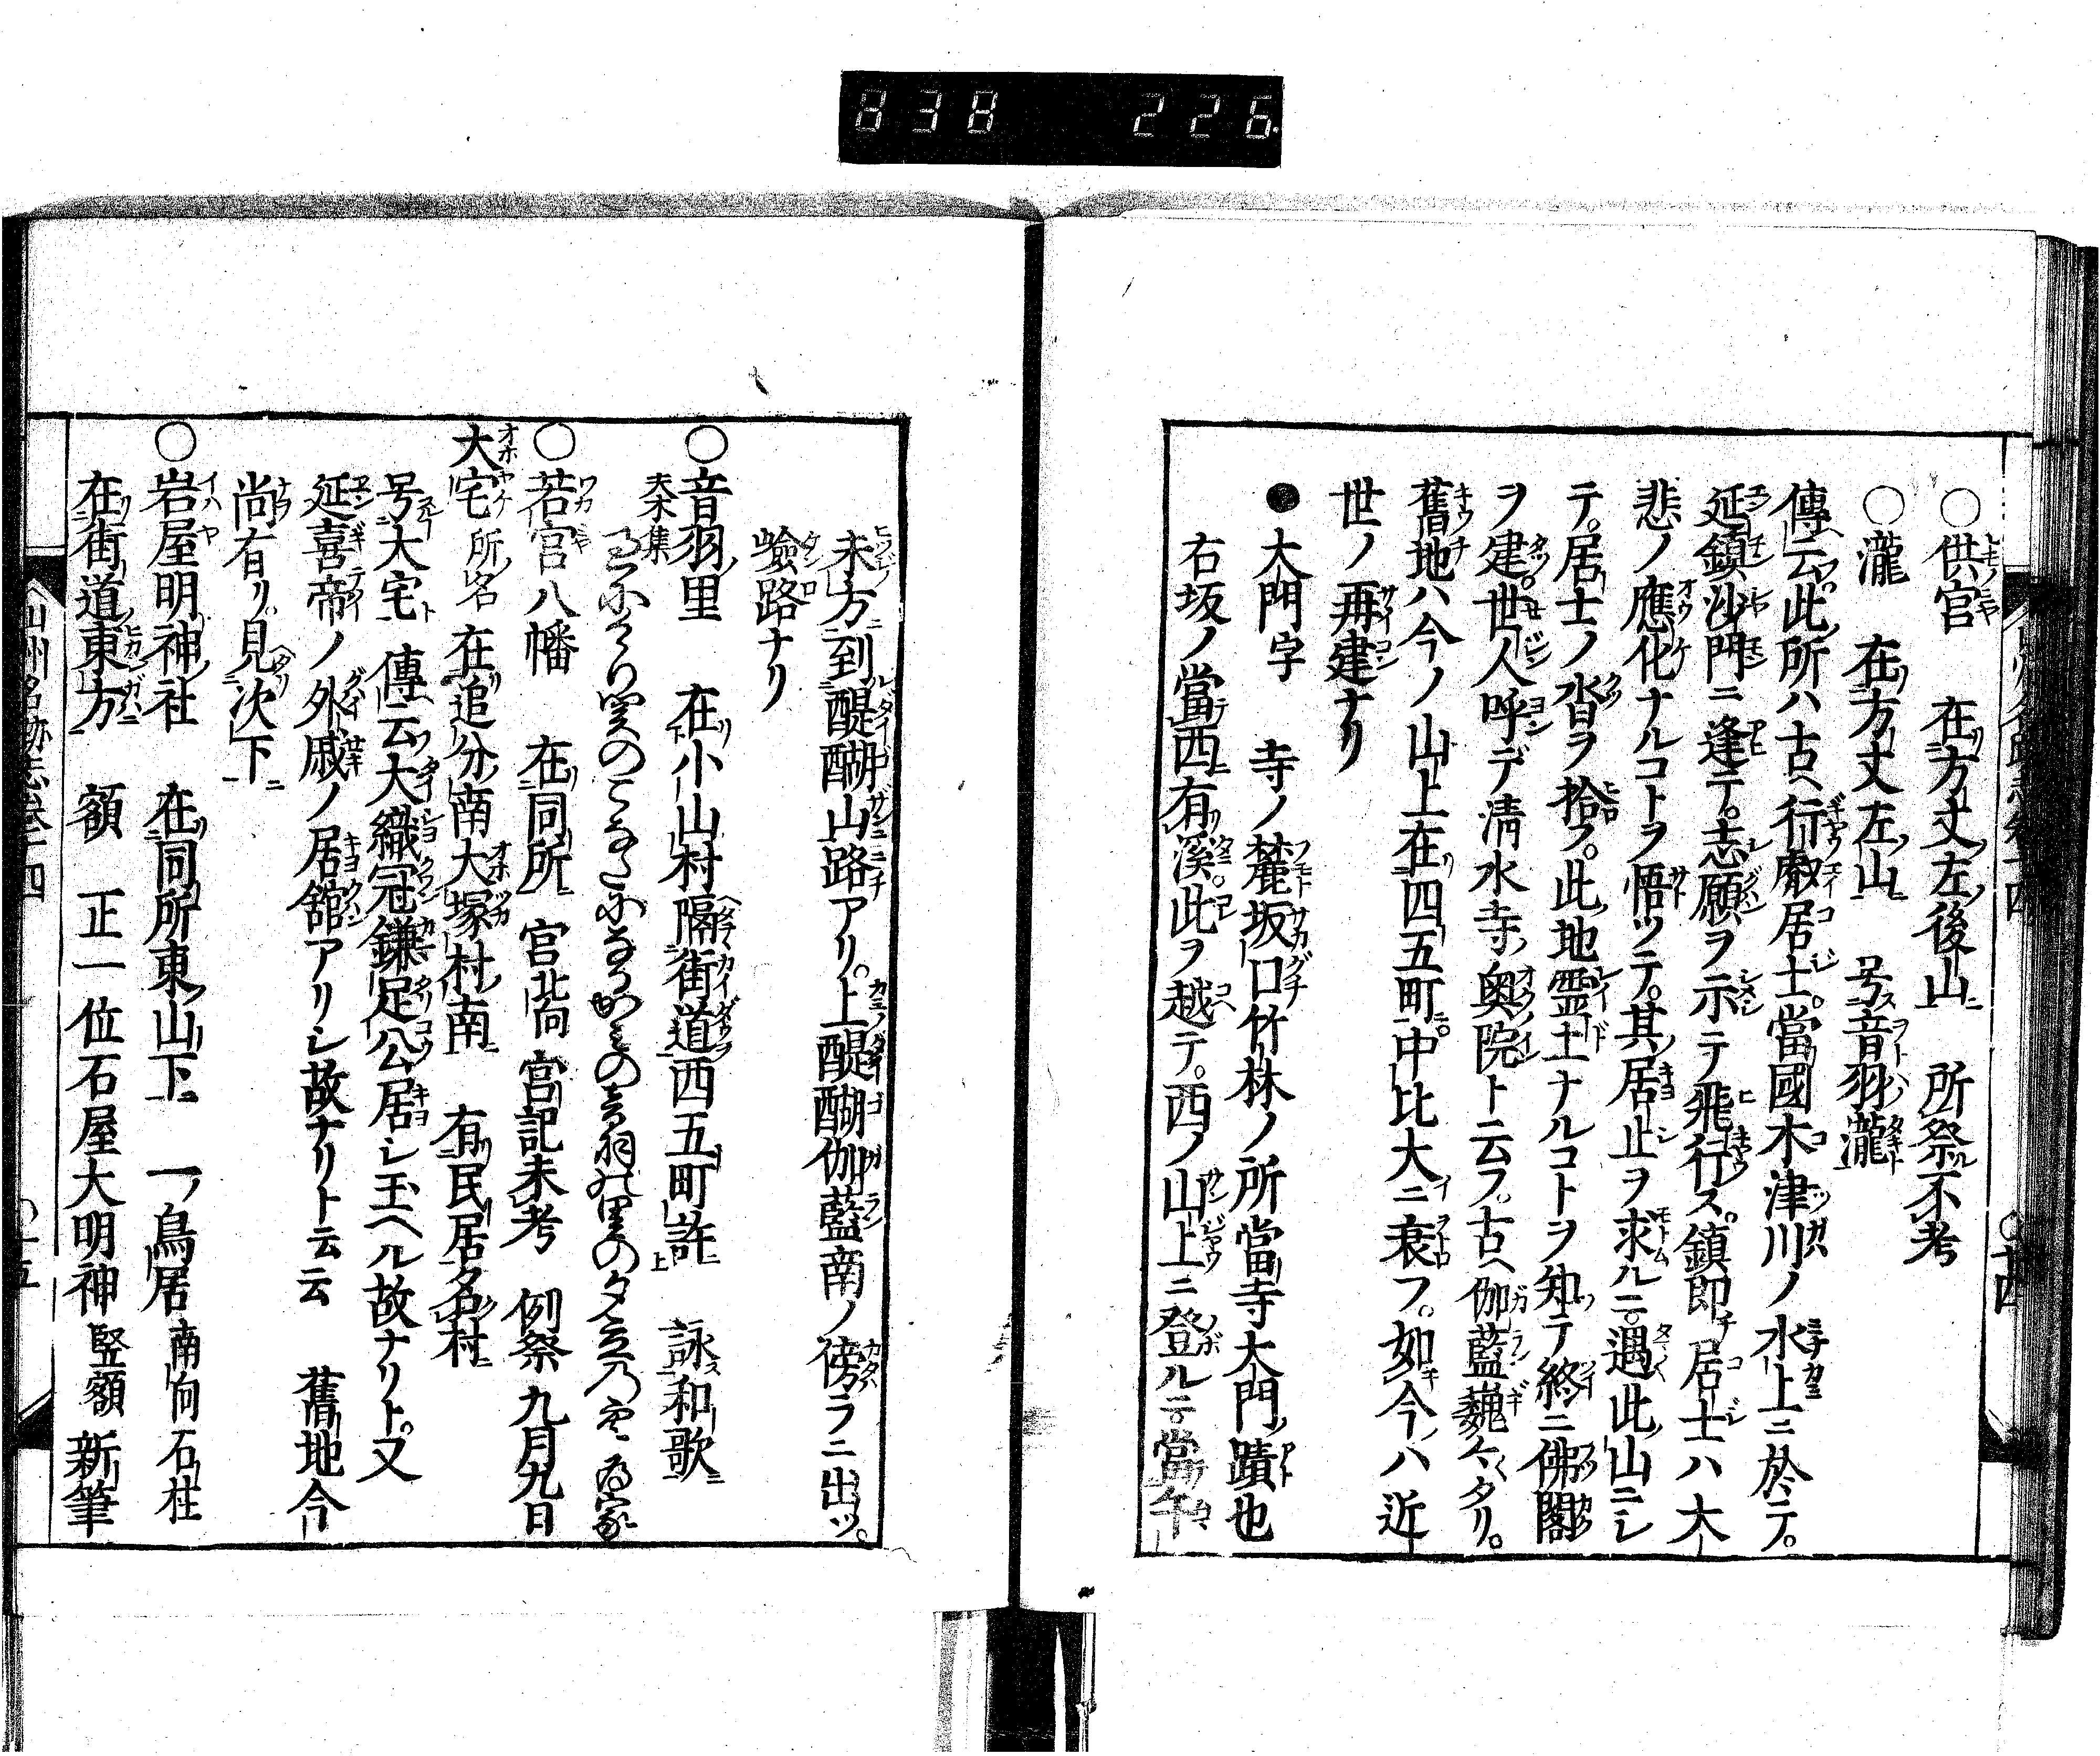 838 226.
○供宮 在方丈左後山 所祭不考
○瀧 在方丈左山 号音羽瀧
傳云此所ハ古ヘ行叡居士當國木津川ノ水上ニ於テ。
延鎮沙門ニ逢テ。志願ヲ示テ飛行ス。鎮即居士ハ大
悲ノ應化ナルコトヲ悟ツテ。其居止ヲ求ルニ。遇此山ニシ
テ。居士ノ沓ヲ拾フ。此地霊土ナルコトヲ知テ終ニ佛閣
ヲ建。世人呼デ清水寺奥院ト云フ。古ヘ伽藍巍々タリ。
舊地ハ今ノ山上在四五町。中比大ニ衰フ。如今ハ近
世ノ再建ナリ
●大門字 寺ノ麓坂口竹林ノ所當寺大門蹟也
右坂ノ當西有溪此ヲ越テ。西ノ山上ニ登ルニ當午
未方到醍醐山路アリ。上醍醐伽藍南ノ傍ラニ出ツ。
嶮路ナリ
○音羽里 在小山村隔街道西五町許 詠和歌
夫木集 の音羽の里の夕立乃 為家
○若宮八幡 在同所 宮北向 宮記未考 例祭九月九日
大宅 所名 在追分南大塚村南 有民居名村
号大宅 傳云大織冠鎌足公居シ玉ヘル故ナリト。又
延喜帝ノ外戚ノ居舘アリシ故ナリト云云 舊地今
尚有リ。見次下
○岩屋明神社 在同所東山下 一ノ鳥居 南向 石柱
在街道東方 額 正一位石屋大明神 竪額 新筆
山州名跡志巻十四